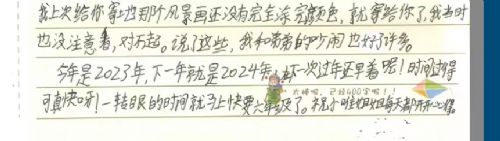 我上次给你寄出的那个风景画还没有完全涂完颜色,就寄给你了,我当时
也没注意看,对不起。说了这些,我和弟弟的吵闹也好了许多。
今年是2023年,下一年就是2024年,下一次过年还早着呢!时间过得
可真快呀!一转眼的时间就马上快要六年级了。祝小姐姐每天都开心
太棒啦,已经400字啦!!